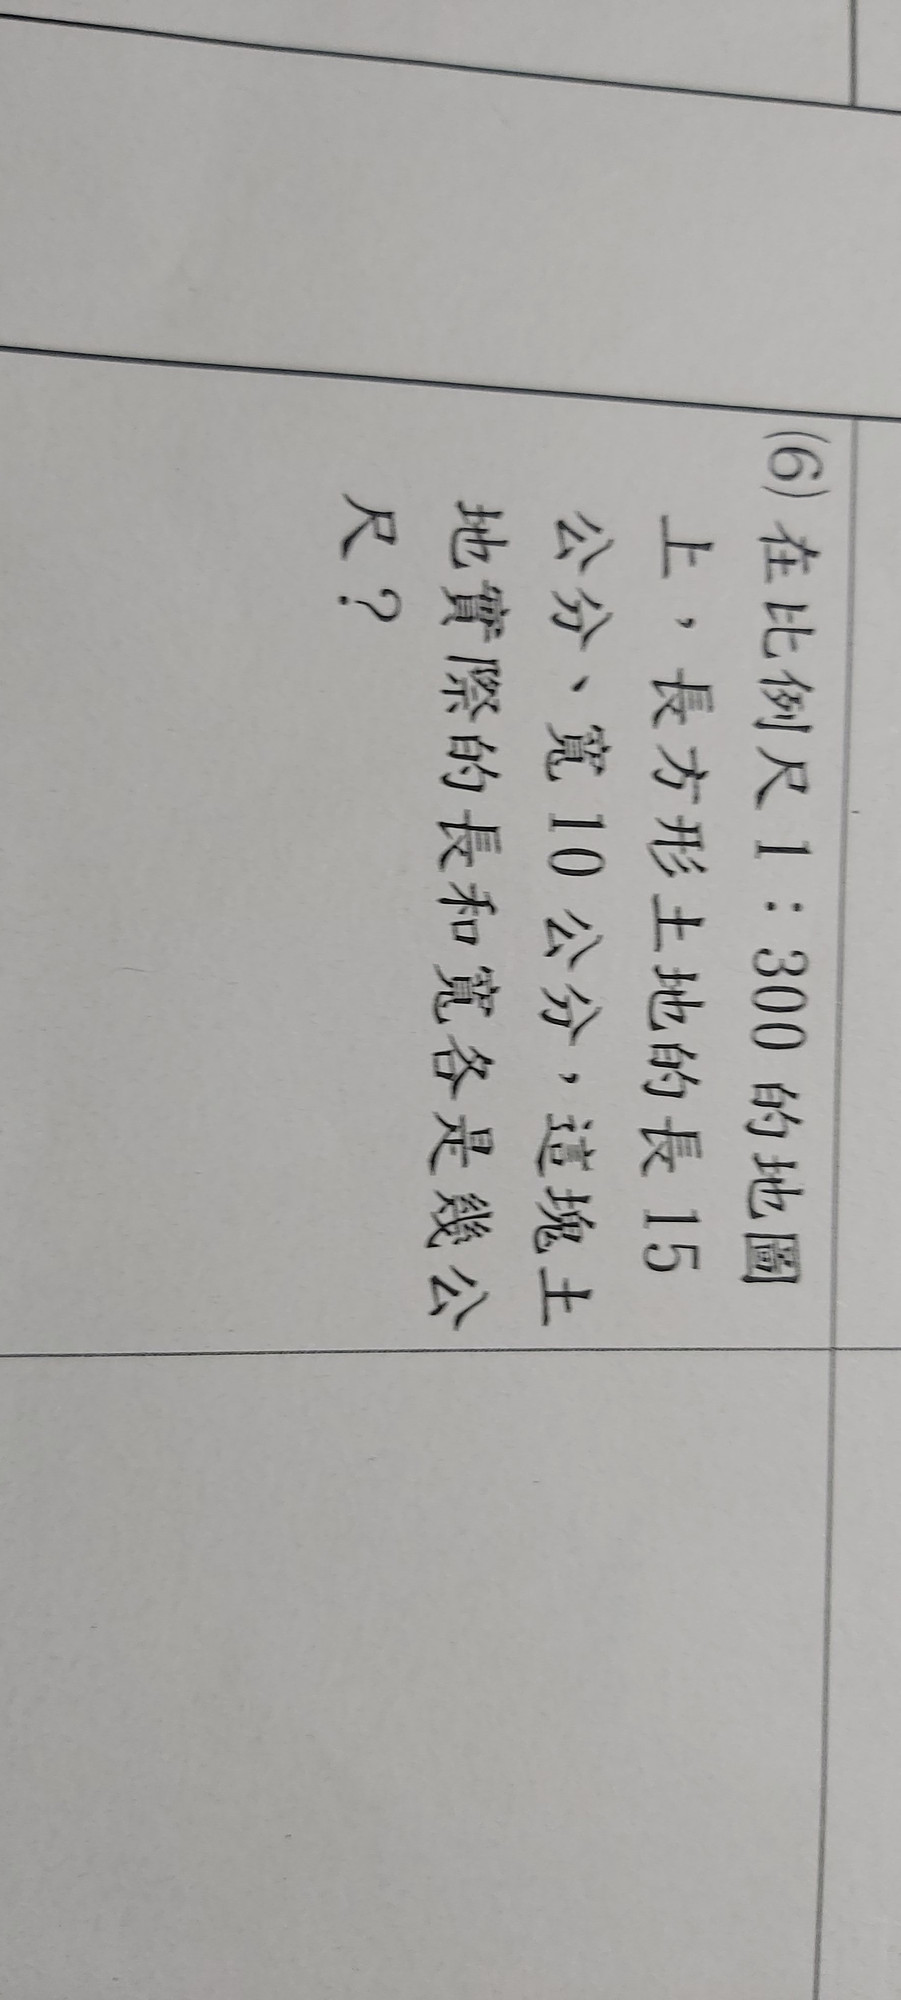 (6) 在比例尺 1：300 的地圖
上，長方形土地的長 15
公分、寬 10 公分，這塊土
地實際的長和寬各是幾公
尺？